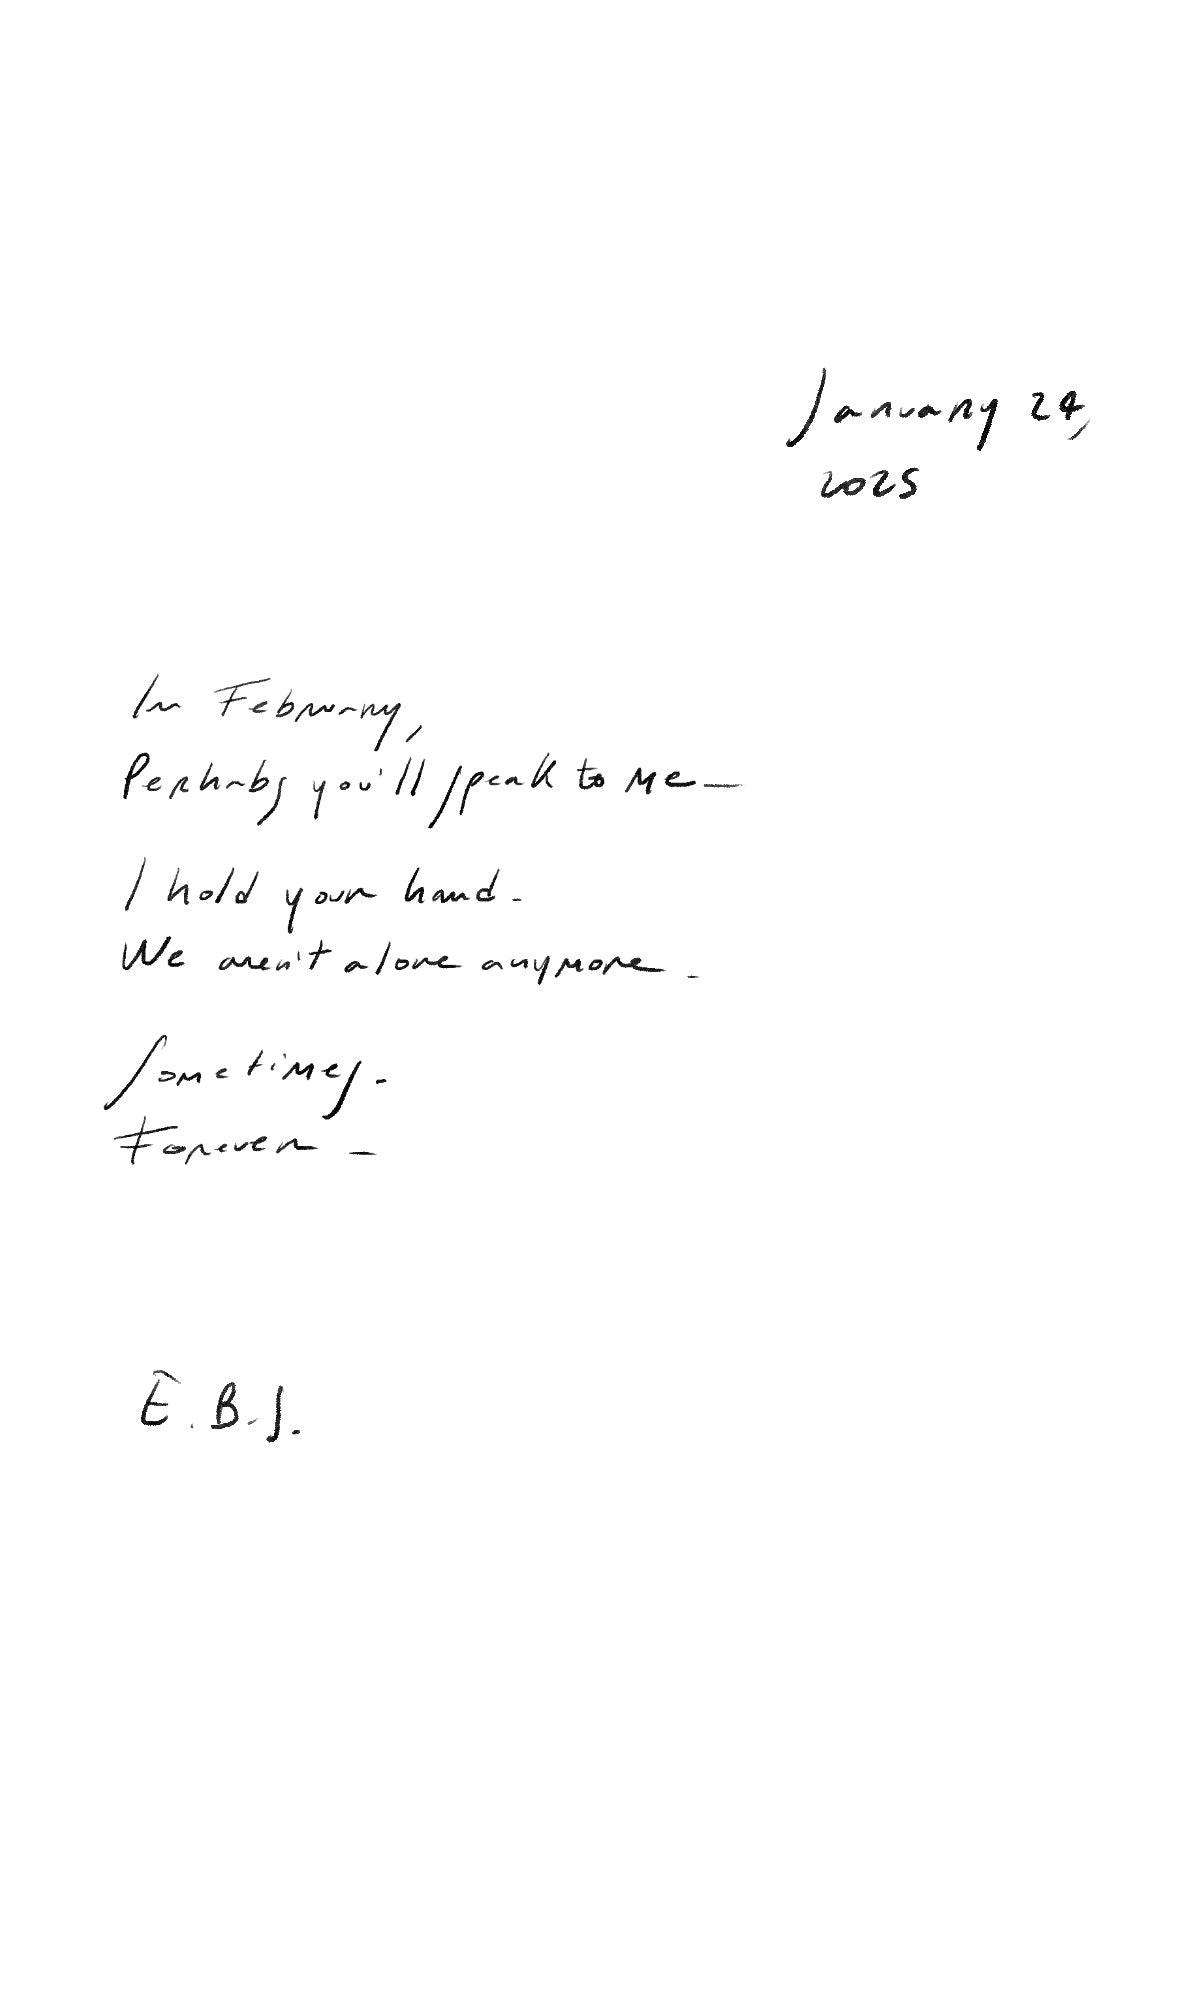 January 24,
2025
In February,
Perhabs you'll speak to me—
I hold your hand.
We aren't alone anymore.
Sometimes.
Forever —
E.B.J.